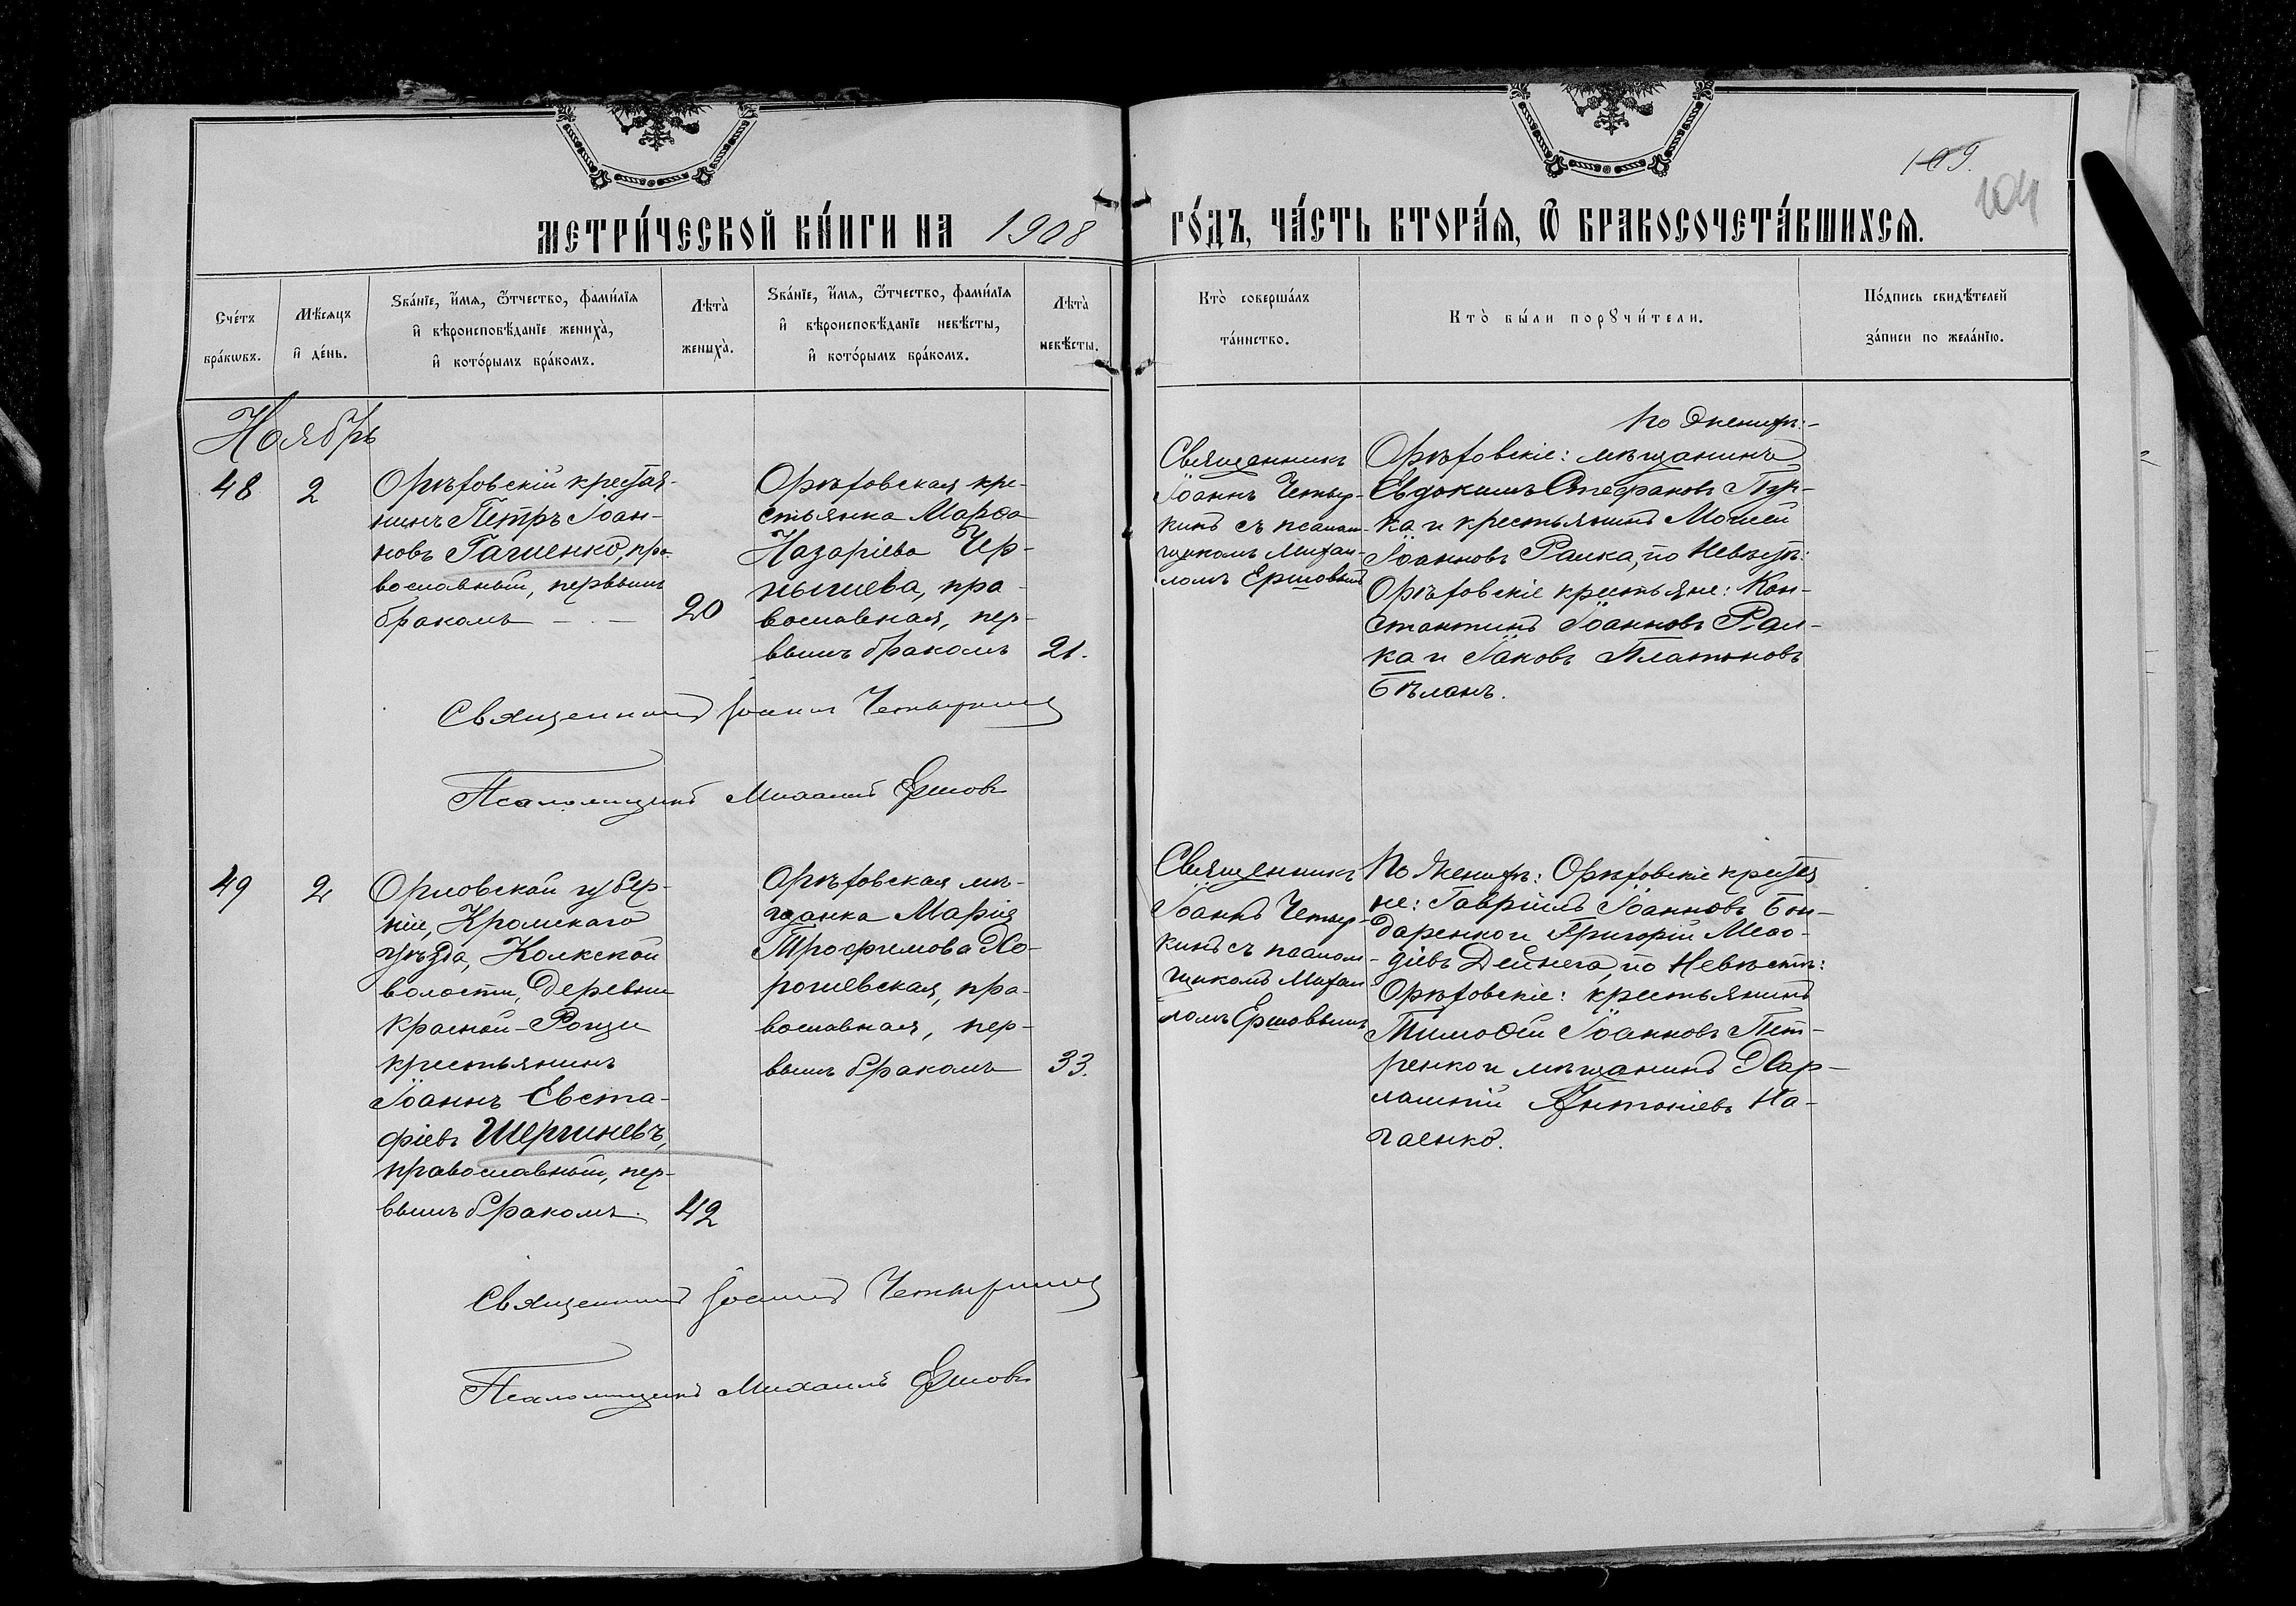 109.
104
МЕТРИ́ЧЕСКОЙ КНИ́ГИ НА 1908 ГО́ДЪ, ЧА́СТЬ ВТОРА́Я, Ѽ БРАКОСОЧЕТА́ВШИХСЯ.
Сче́тъ
бра́кѡвъ.
Мѣ́сяцъ
и҆ де́нь.
Ѕва́нїе, и҆́мя, ѻ҆́тчество, фами́лїя
и҆ вѣроисповѣ́данїе жениха̀,
и҆ кото́рымъ бра́комъ.
Лѣта̀
жениха̀.
Ѕва́нїе, и҆́мя, ѻ҆́тчество, фами́лїя
и҆ вѣроисповѣ́данїе невѣ́сты,
и҆ кото́рымъ бра́комъ.
Лѣта̀
невѣ́сты.
Кто̀ соверша́лъ
та́инство.
Кто̀ бы́ли порꙋчи́тели.
По́дпись свидѣ́телей
за́писи по жела́нїю.
Ноябрь
48
2
Орѣховскій крестья-
нинъ Петръ Іоан-
новъ Гагиенко, пра-
вославный, первымъ
бракомъ
20
Орѣховская кре-
стьянка Марѳа
Назаріева Чер-
нышева, пра-
вославная, пер-
вымъ бракомъ
21.
Священникъ
Іоаннъ Четыр-
кинъ съ псалом-
щикомъ Михаи-
ломъ Ершовымъ
По Женихѣ:
Орѣховскіе: мѣщанинъ
Евдокимъ Стефановъ Пур-
ка и крестьянинъ Моисей
Іоанновъ Раика, по Невѣстѣ:
Орѣховскіе крестьяне: Кон-
стантинъ Іоанновъ Раи-
ка и Іаковъ Платоновъ
Бѣланъ.
Священникъ Іоаннъ Четыркинъ
Псаломщикъ Михаилъ Ершовъ
49
2
Орловской губер-
ніи, Кромскаго
уѣзда, Колкской
волости, Деревни
Красной-Рощи
крестьянинъ
Іоаннъ Евста-
фіевъ Шергиневъ,
православный, пер-
вымъ бракомъ.
42
Орѣховская мѣ-
щанка Марія
Трофимова Хо-
рошевская, пра-
вославная, пер-
вымъ бракомъ
33.
Священникъ
Іоаннъ Четыр-
кинъ съ псалом-
щикомъ Михаи-
ломъ Ершовымъ
По Женихѣ: Орѣховскіе крестья
не: Гавріилъ Іоанновъ Бон-
даренко и Григорій Меѳо-
діевъ Дейнега, по Невѣстѣ:
Орѣховскіе: крестьянинъ
Тимоѳей Іоанновъ Пет-
ренко и мѣщанинъ Хар-
лампій Антоніевъ На-
гаенко.
Священникъ Іоаннъ Четыркинъ
Псаломщикъ Михаилъ Ершовъ